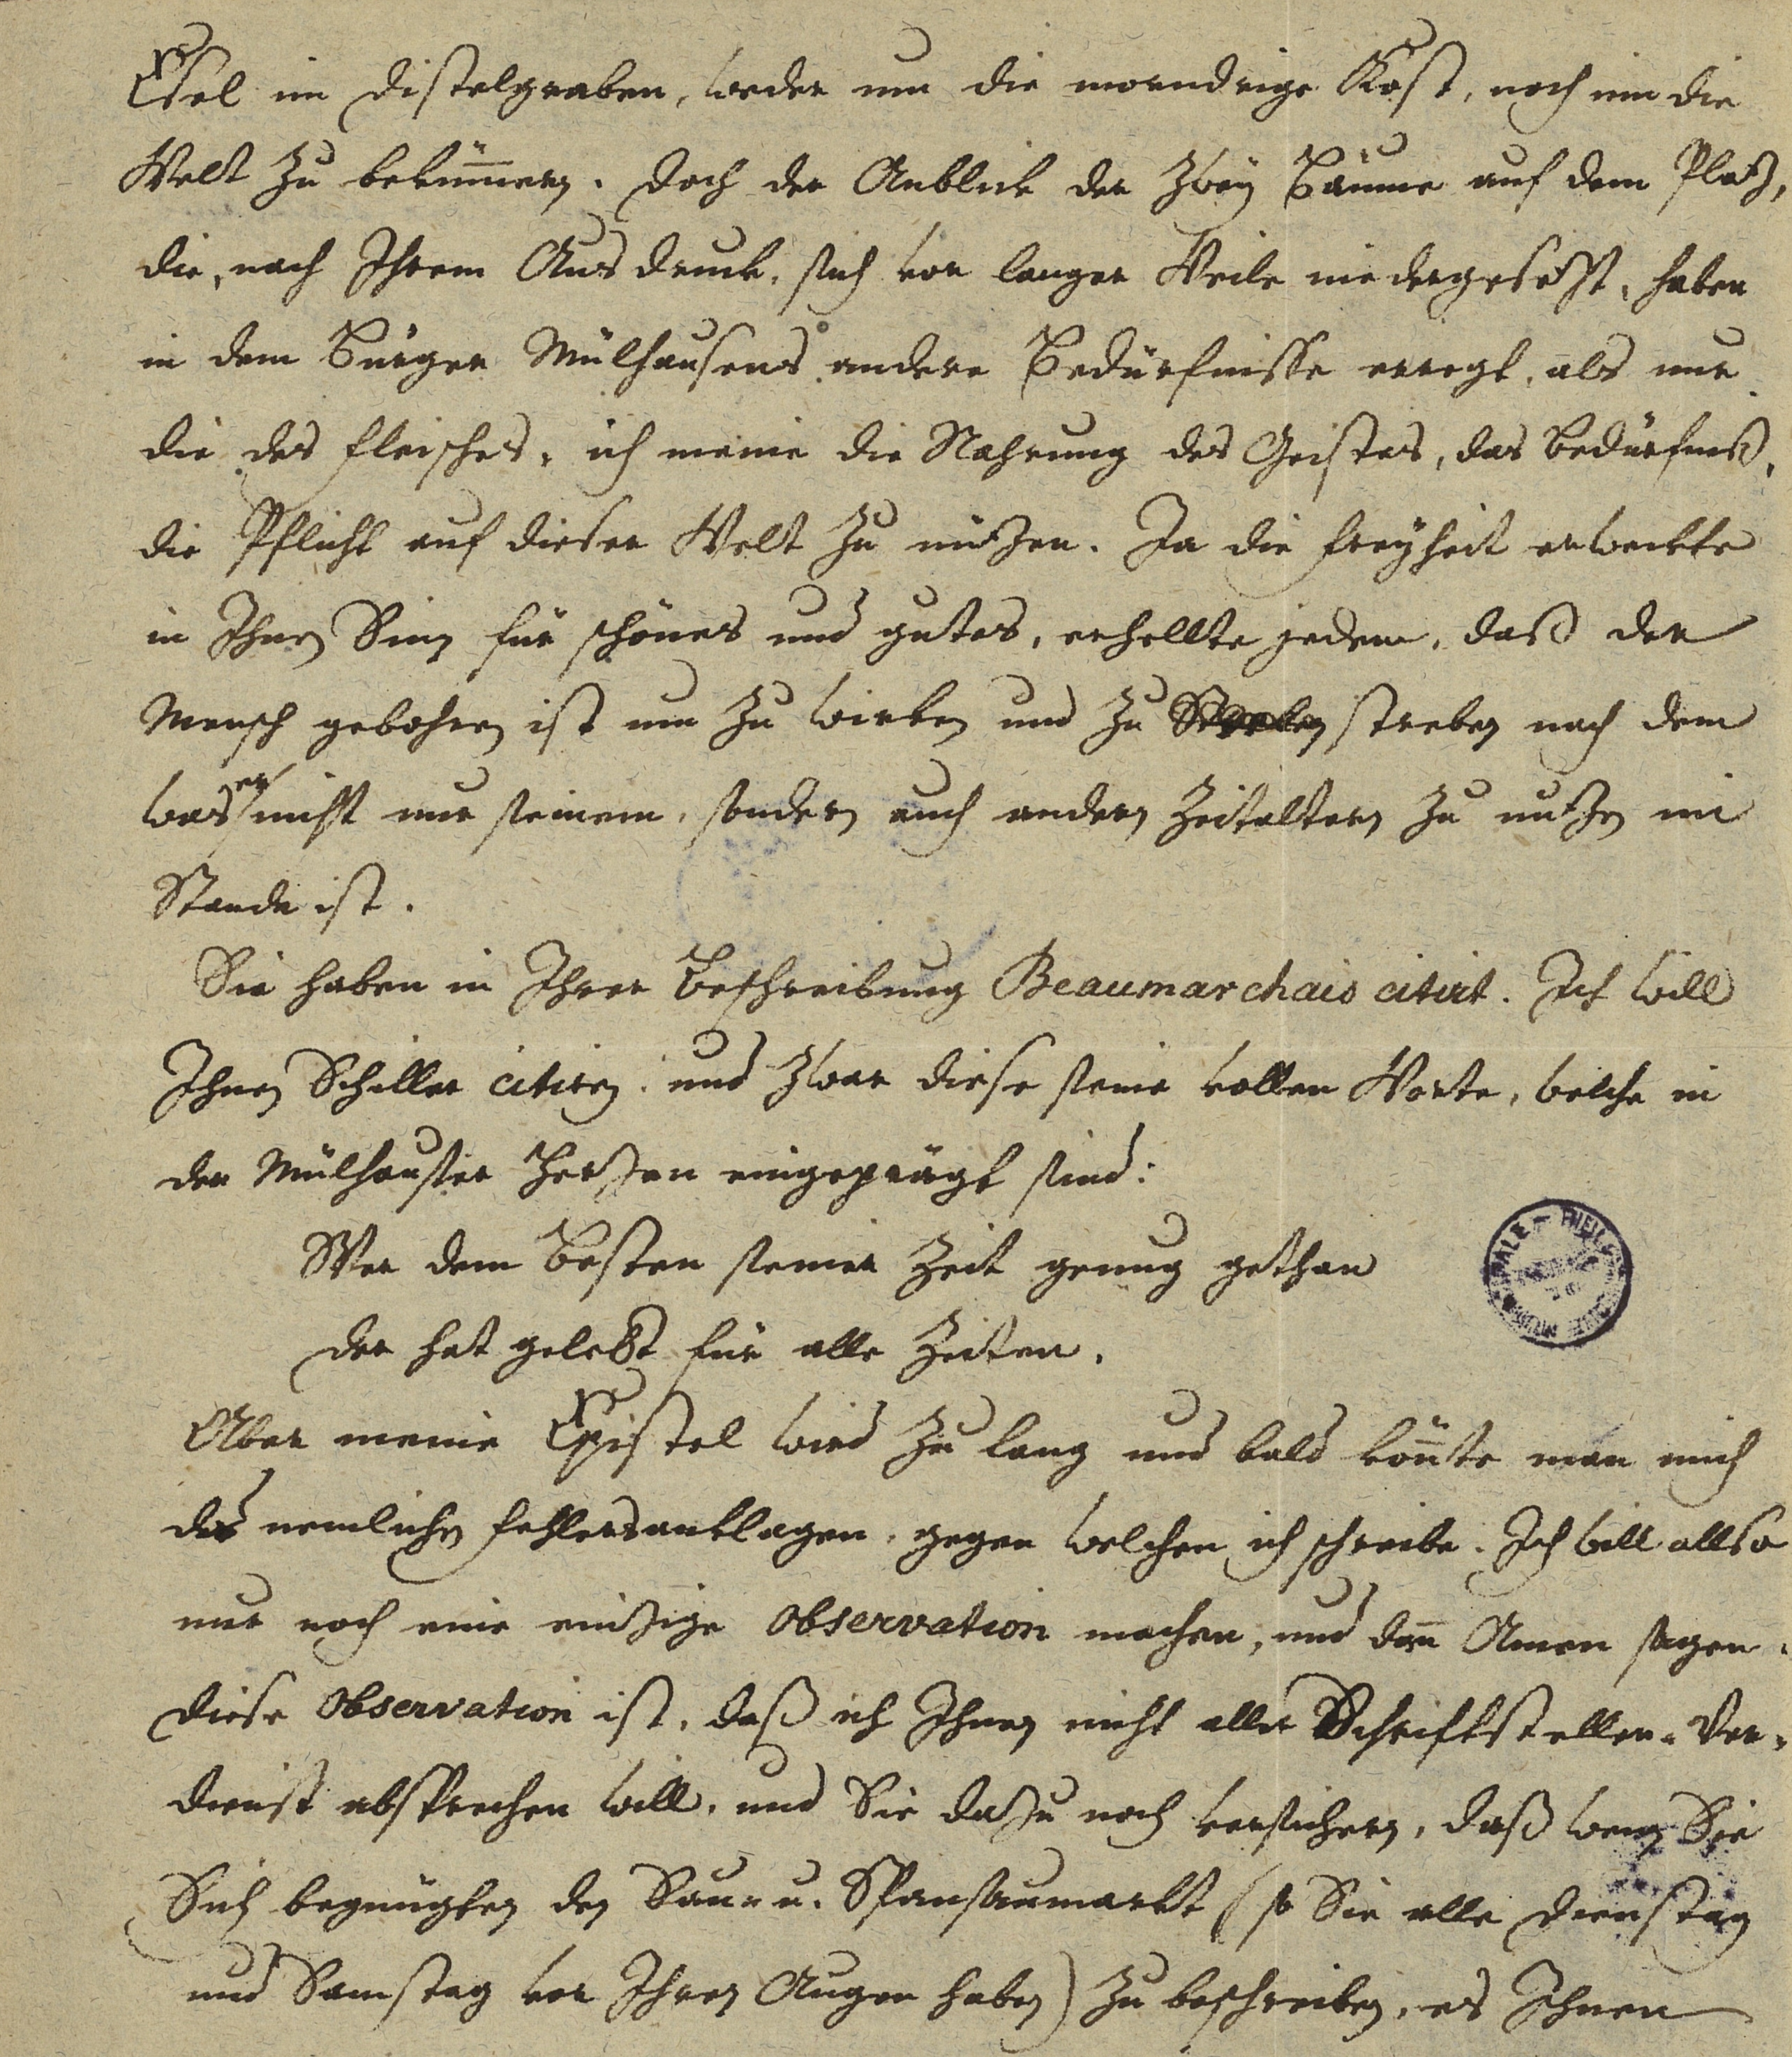 Esel im Distelgraben, weder um die morndrige Kost, noch um die
Welt zu bekümmern. Doch der Anblick der zwey Bäume auf dem Platz,
die, nach Ihrem Ausdruck, sich vor langer Weile niedergesetzt, haben
in dem Bürger Mülhausens andere Bedürfnisse erregt, als nur
die des Fleisches, ich meine die Nahrung des Geistes, das Bedürfniß,
die Pflicht auf dieser Welt zu nützen. Ja die Freyheit erweckte
in Ihnen Sinn für schönes und gutes, erhellte jedem, daß der
Mensch gebohren ist um zu wirken und zu streben nach dem
was er nicht nur seinem, sondern auch andern Zeitaltern zu nutzen im
Stande ist.
Sie haben in Ihrer Beschreibung Beaumarchais citirt. Ich will
Ihnen Schiller citiren, und zwar diese seine vollen Worte, welche in
der Mülhauser Herzen eingeprägt sind:
Wer dem Besten seiner Zeit genug gethan
der hat gelebt für alle Zeiten.
Aber meine Epistel wird zu lang und bald könnte man mich
des nemlichen Fehlers anklagen, gegen welchen ich schreibe. Ich will allso
nur noch eine einzige Observation machen, und dann Amen sagen.
Diese Observation ist, daß ich Ihnen nicht alles Schriftsteller-Ver-
dienst absprechen will, und Sie dazu noch versichern, daß wenn Sie
Sich begnügten den Sau- u. Spansaumarkt (so Sie alle Dienstag
und Samstag vor Ihren Augen haben) zu beschreiben, es Ihnen